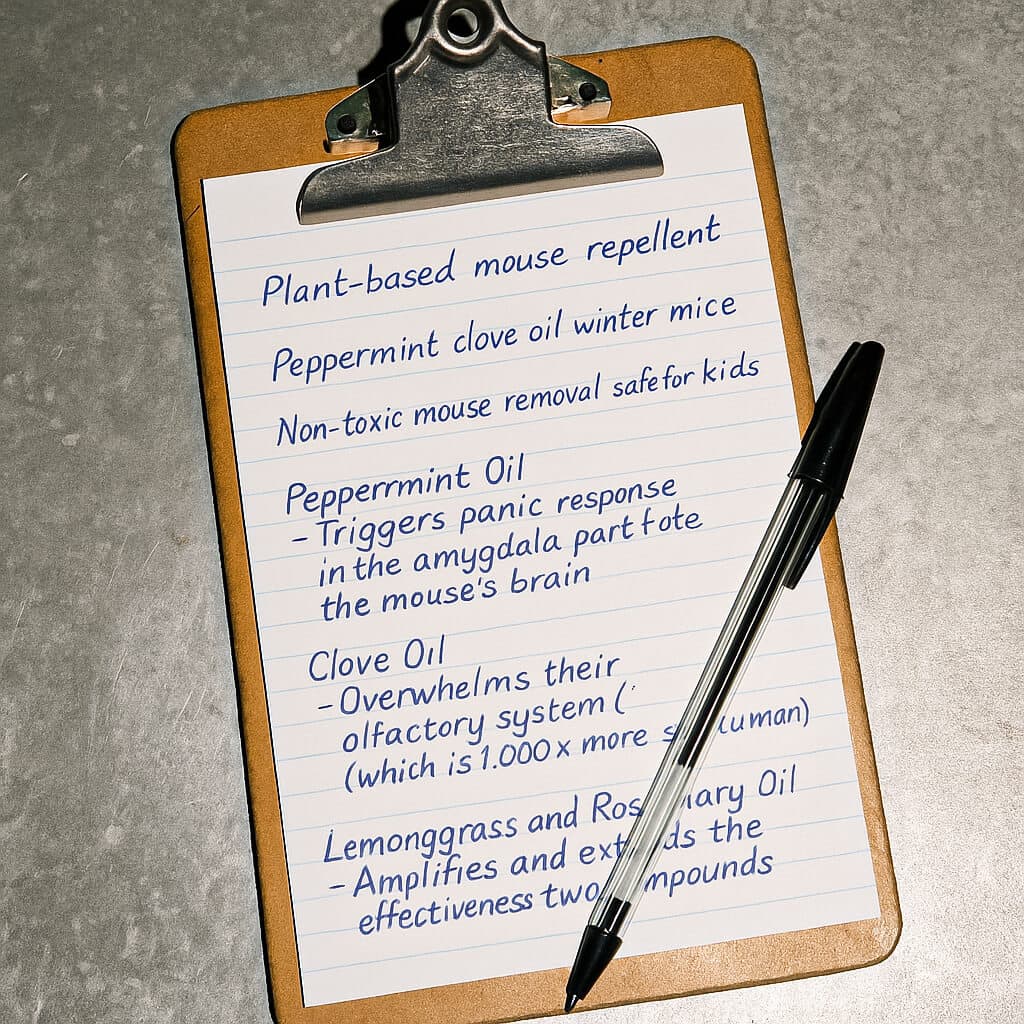 Plant-based mouse repellent
Peppermint clove oil winter mice
Non-toxic mouse removal safe for kids
Pepperrmint Oil
- Triggers panic response
in the amygdala part fote
the mouse's brain
Clove Oil
- Overwhelms their
olfactory system (
(which is 1.000 x more
Lemonggrass and Oil
- Amplifies and the
effectiveness two